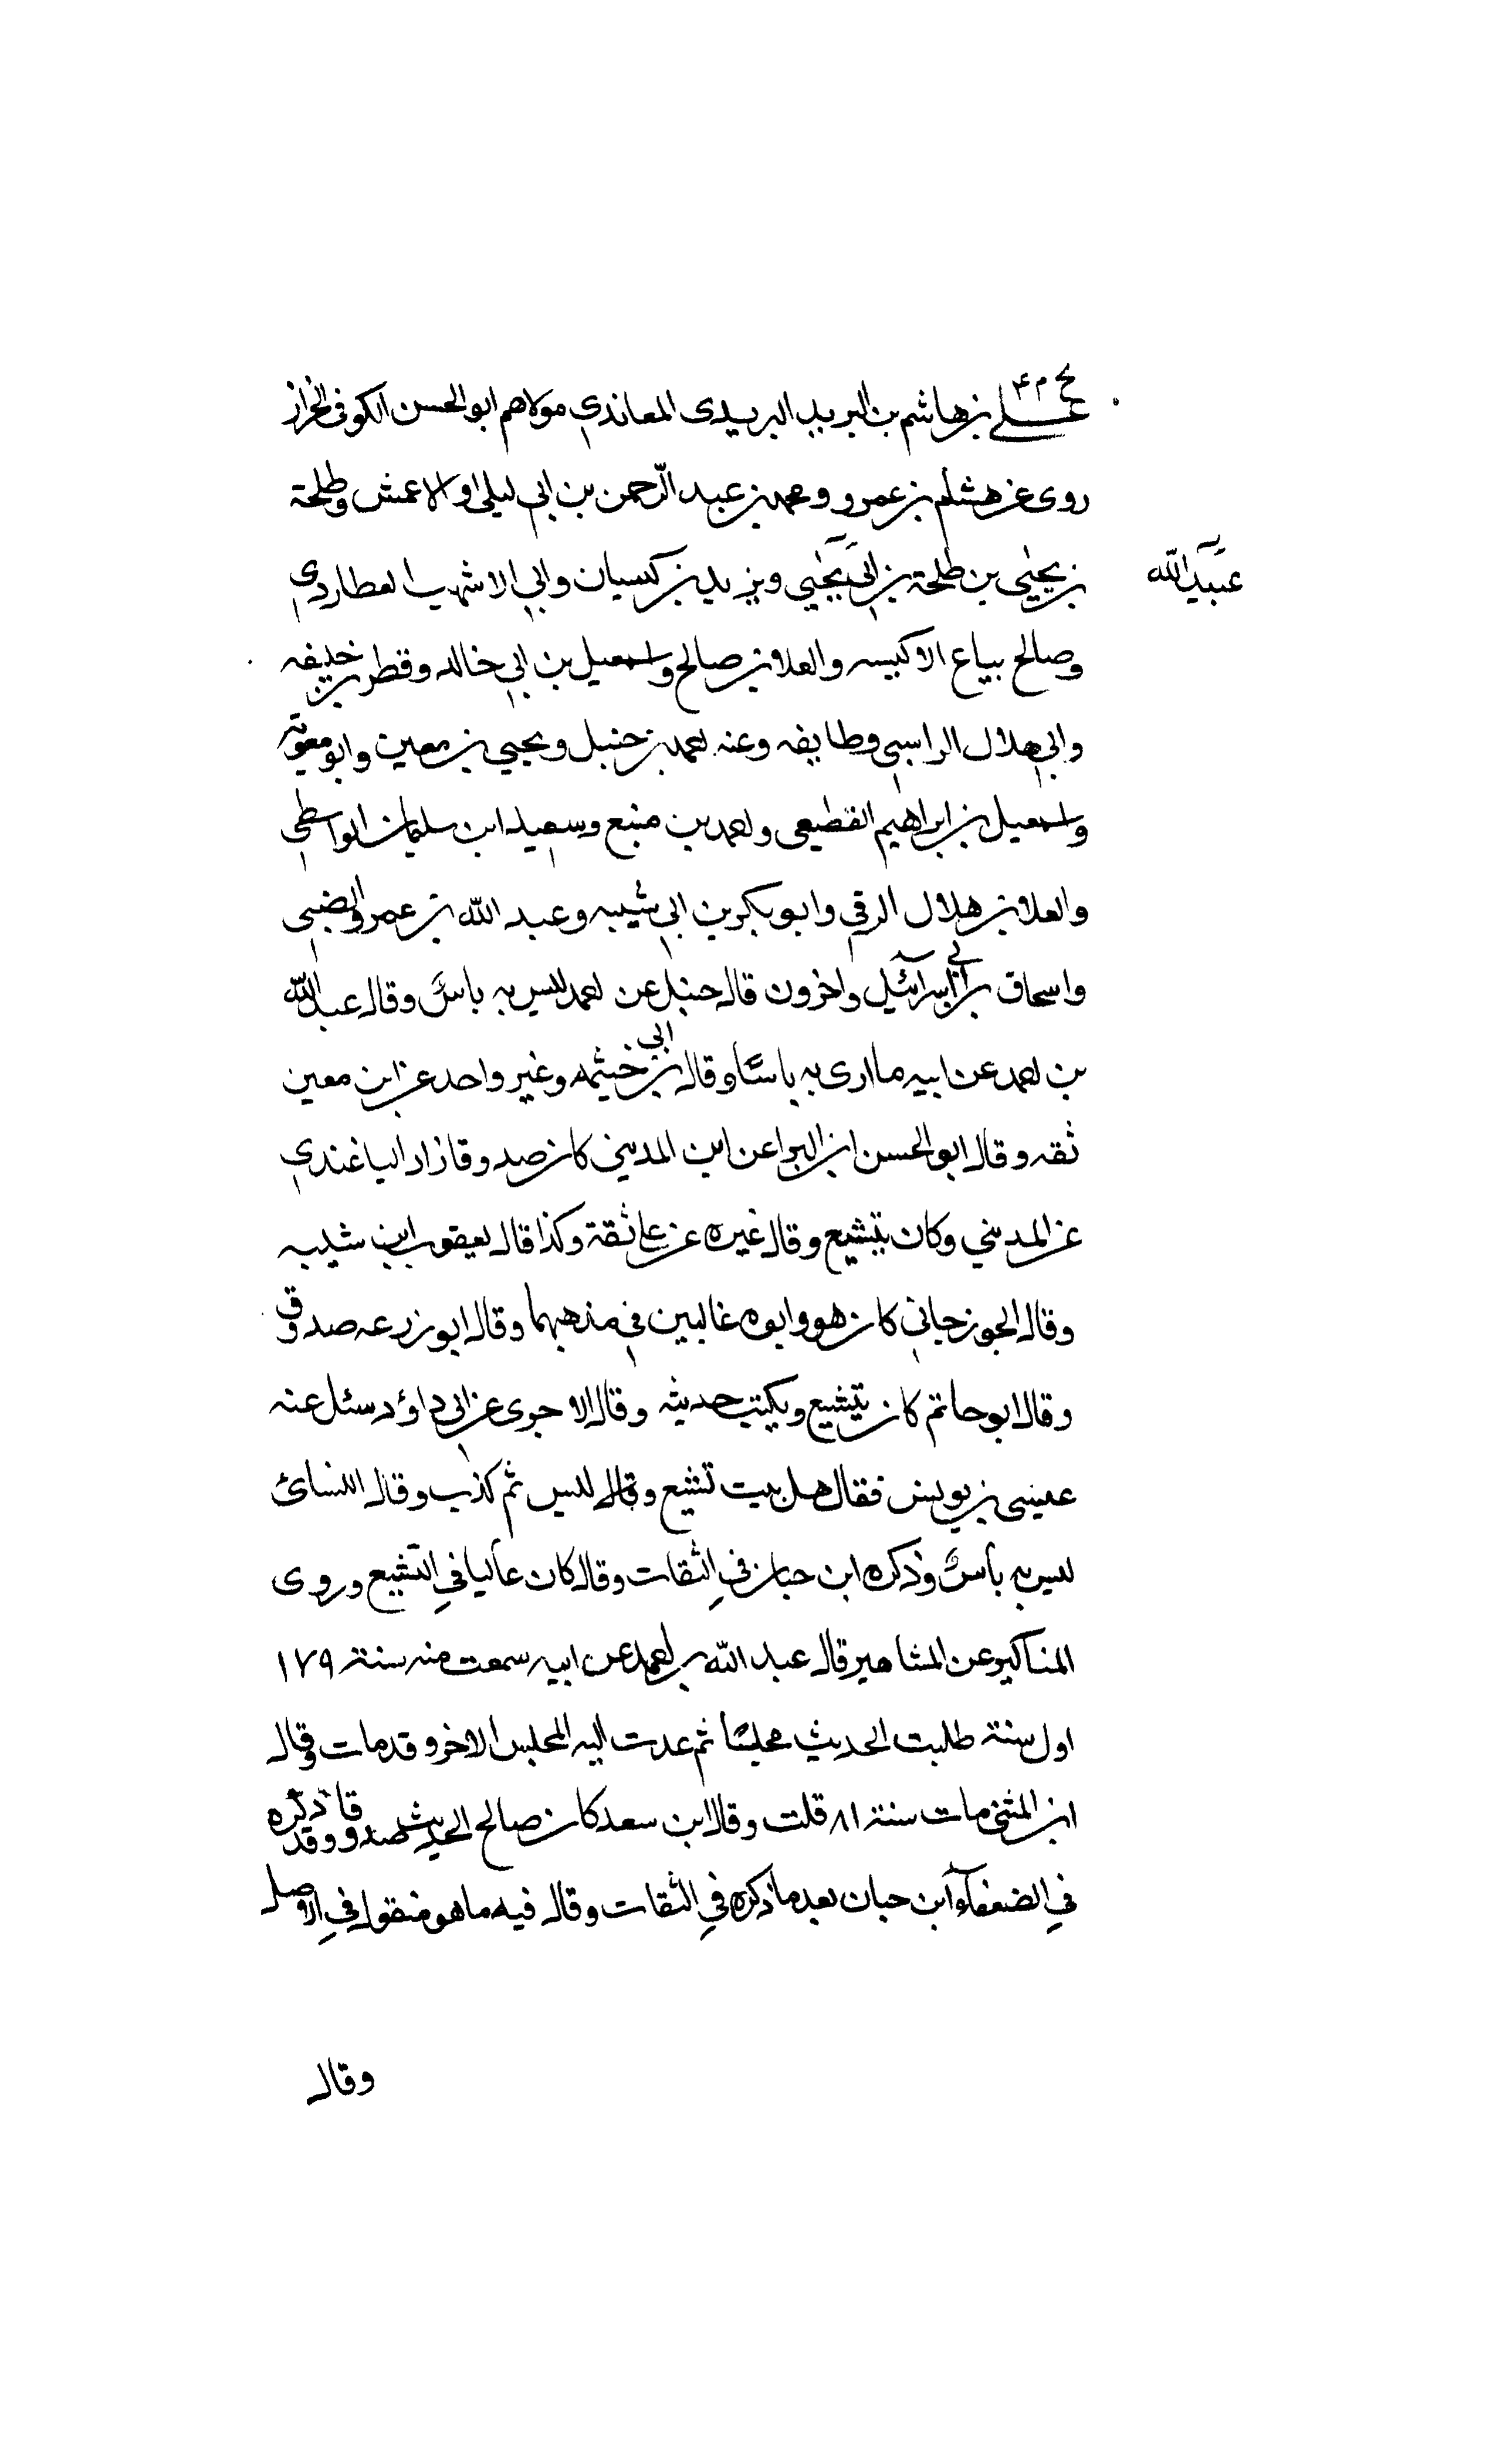 بخ م ۴
علي بن هاشم بن البريد البريدى المعاندي مولاهم ابو الحسن الكوفى الخزاز
روى عن هشام بن عمرو ومحمد بن عبد الرحمن بن ابي ليلى والاعمش وطلحة
بن يحيي بن طلحة بن ابي يحيي ويزيد بن كيسان وابي الاشهب العطاردي
عبيد الله
وصالح بياع الاكيسه والعلا بن صالح واسمعيل بن ابي خالد وقطر بن خليفه
وابي هلال الراسبي وطايفه وعنه احمد بن حنبل ويحيي بن معين وابو معوية
واسمعيل بن ابراهيم القطيعي واحمد بن منيع وسعيد ابن سليمان الواسطي
والعلا بن هلال الرقي وابو بكر بن ابي شيبه وعبد الله بن عمرو الضبي
واسحاق بن ابي اسرآئيل واخرون قال حنبل عن احمد ليس به باسٌ وقال عبد الله
بن احمد عن ابيه ما ارى به باسًا وقال بن ابي خيثمه وغير واحد عن ابن معين
ثقه وقال ابو الحسن ابن البرا عن ابن المديني كان صدوقا زاد الباغندي
عن المديني وكان يتشيع وقال غيره عن علي ثقة وكذا قال يعقوب ابن شيبه
وقال الجوزجاني كان هو وابوه غاليين في مذهبهما وقال ابو زرعه صدوق
وقال ابو حاتم كان يتشيع ويكتب حديثه وقال الاجرى عن ابي داؤد سئل عنه
عيسى بن يونس فقال اهل بيت تشيع وقال ليس ثم كذب وقال النسائ
ليس به بأسٌ وذكره ابن حبان في الثقات وقال كان غاليا في التشيع وروى
المناكير عن المشاهير قال عبد الله بن احمد عن ابيه سمعت منه سنة ١٧٩
اول سنة طلبت الحديث مجلسًا ثم عدت اليه المجلس الاخر وقد مات وقال
ابن المثنى مات سنة ٨١ قلت وقال ابن سعد كان صالح الحديث صدوقا وقد ذكره
في الضعفآء ابن حبان بعد ما ذكره في الثقات وقال فيه ما هو منقول في الاصل
وقال